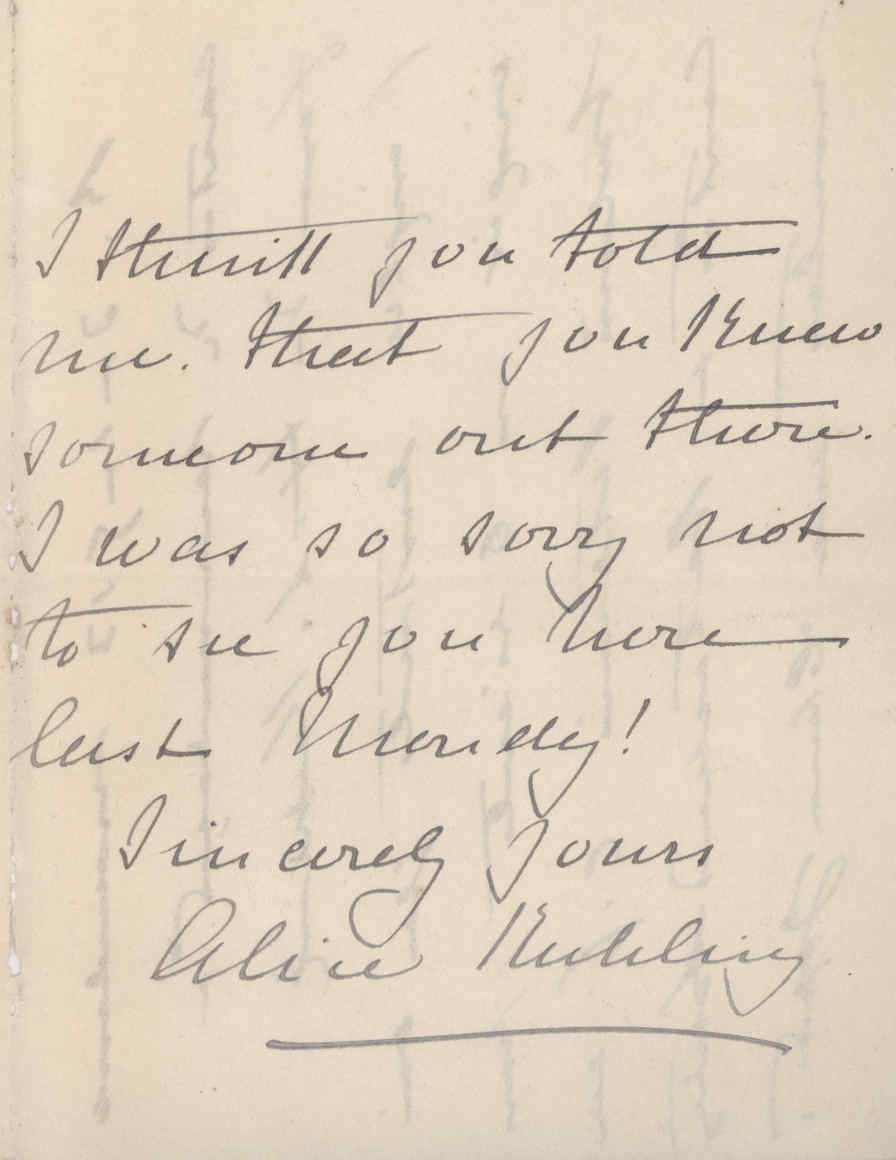 I think you told
me. that you knew
someone out there.
I was so sorry not
to see you here
last Monday!
Sincerely yours
Alice